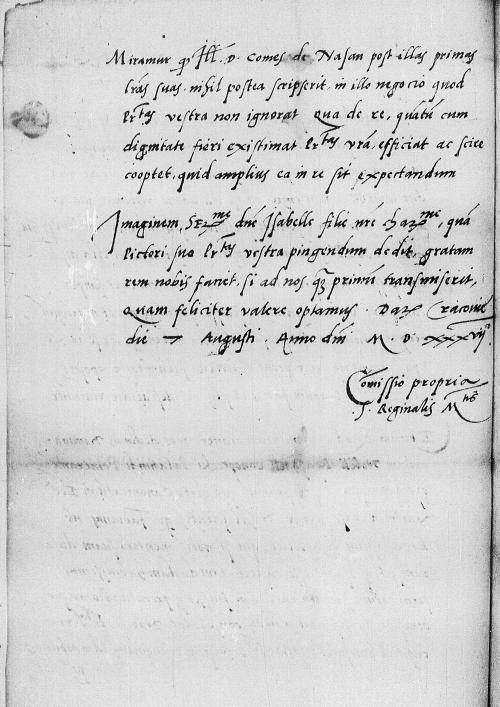 Miramur q Ill. D. Comes de Nasau post illas primas
lras suas. nihil postea scripserit. in illo negocio quod
Prtas vestra non ignorat Qua de re, quatũ cum
dignitate fieri existimat Prtas vra, efficiat ac scire
cooptet, quid amplius ea in re sit expectandum
Imaginem, Serme dne Isabelle filie nre chme, quã
Pictori suo Prtas vestra pingendum dedit, gratam
rem nobis faciet, si ad nos q primũ transmiserit,
Quam feliciter valere optamus. Dat Cracovie
die 7 Augusti. Anno dni M. D. xxxvij.
Comissio propria
S. Reginalis Mtis